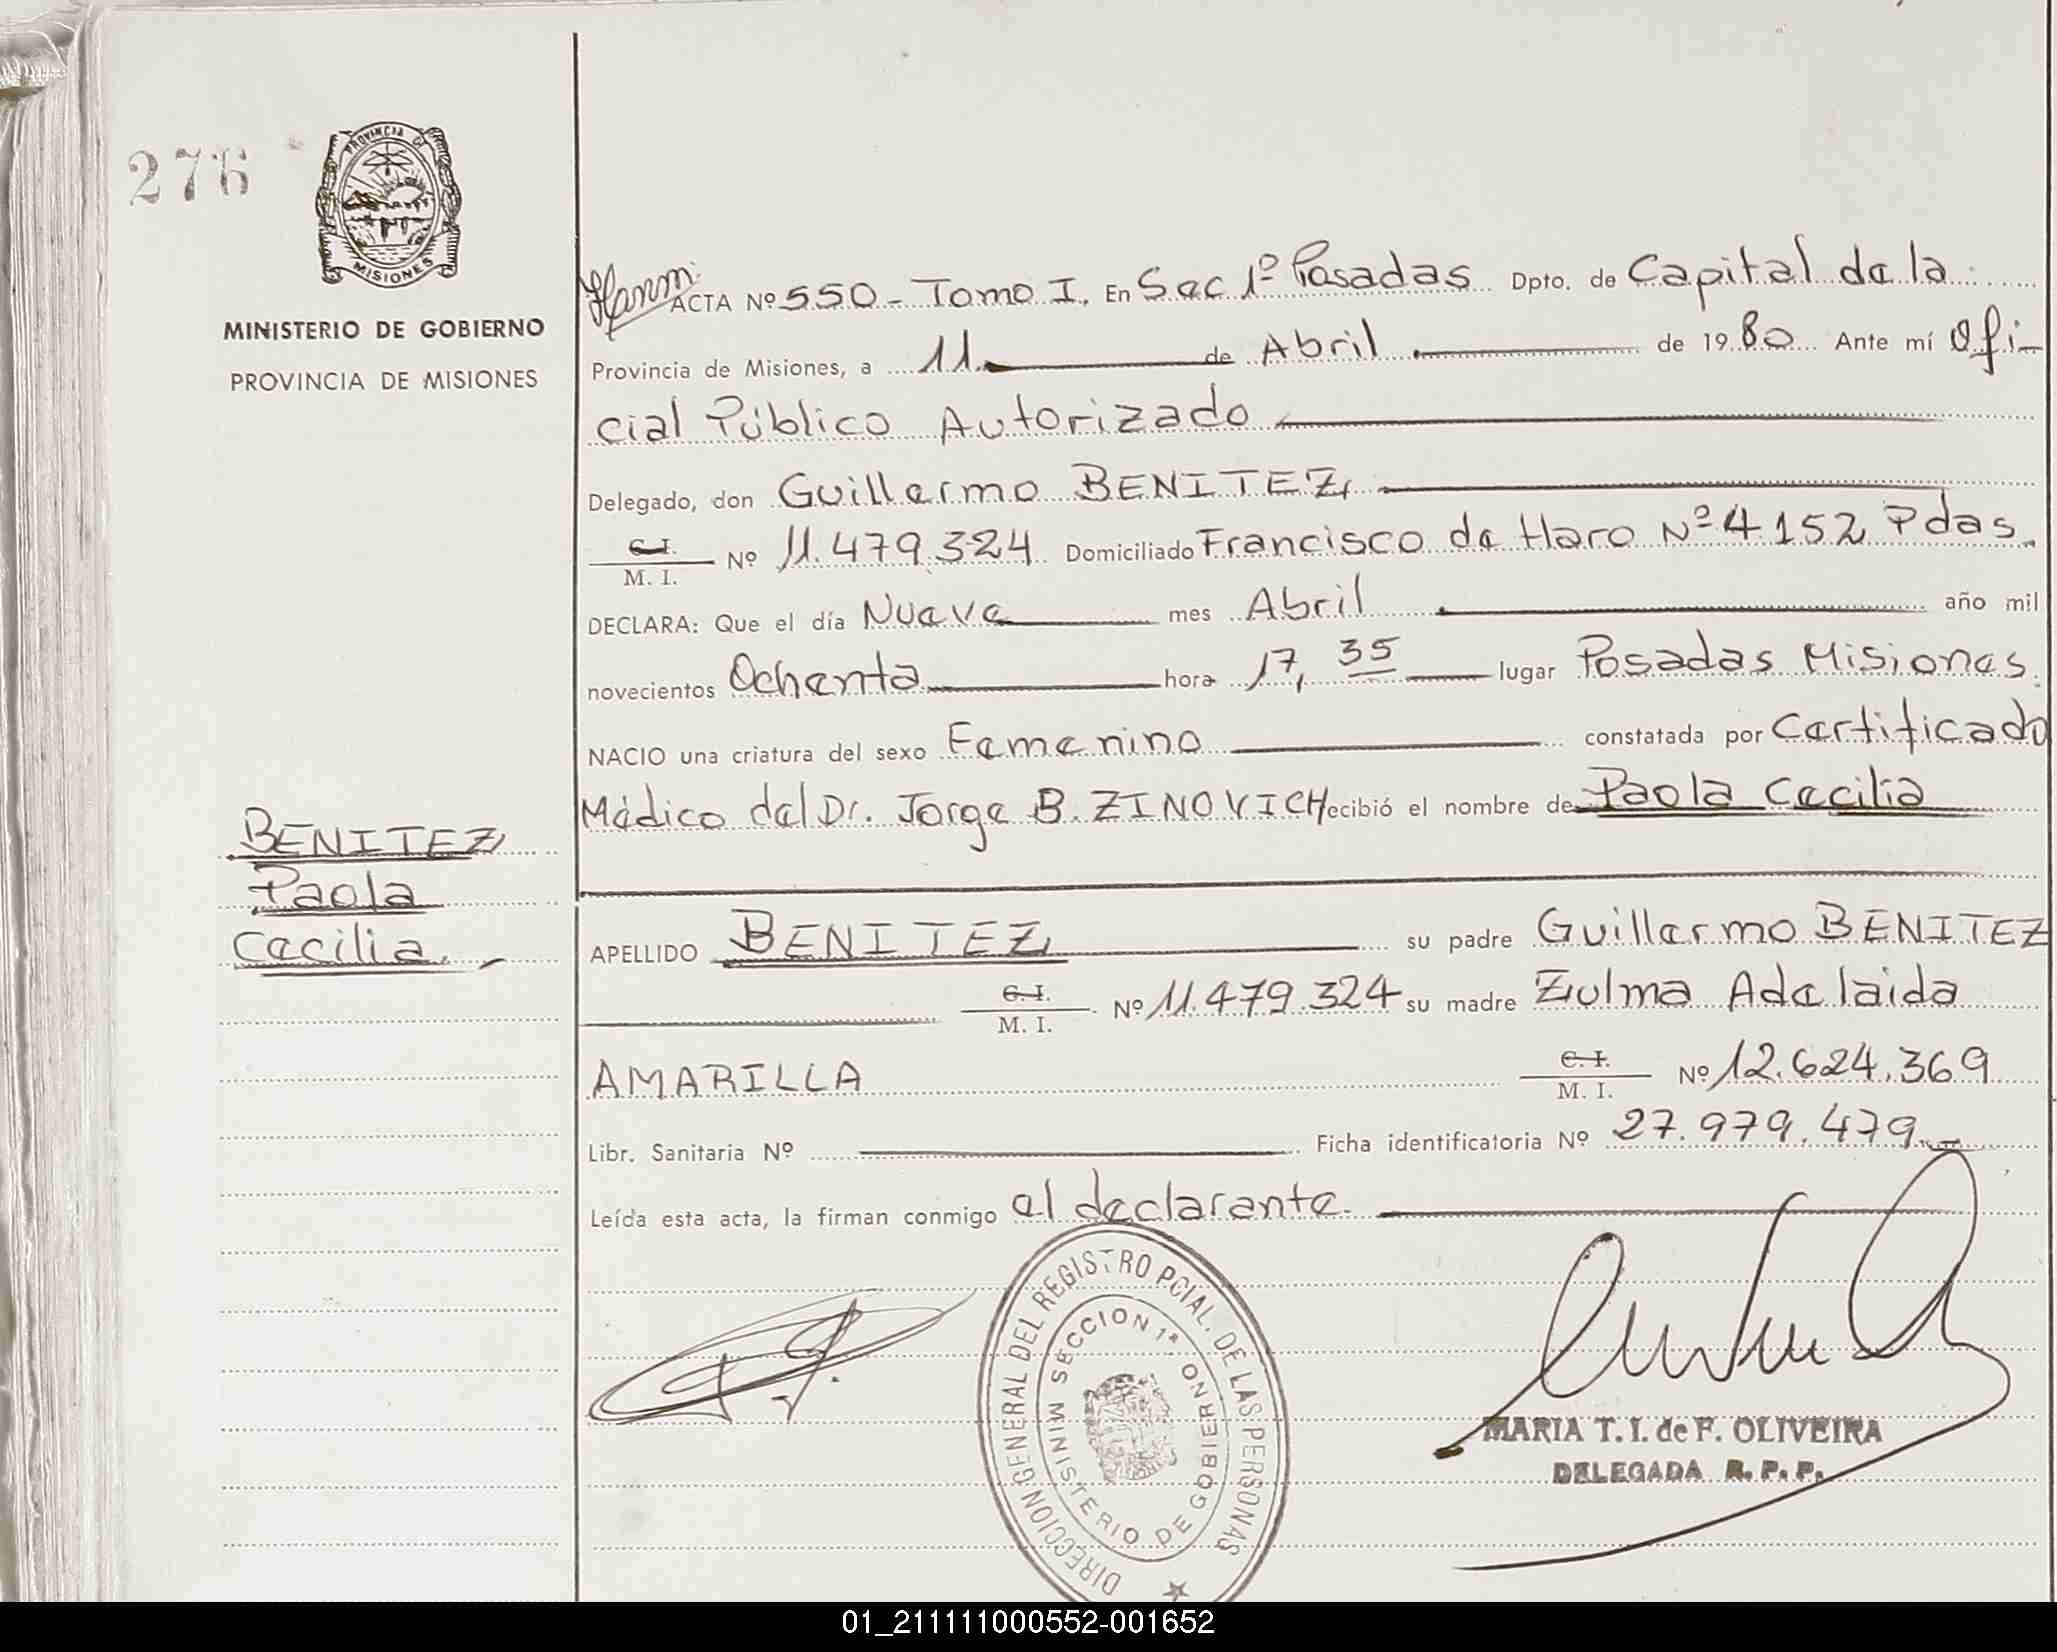 276
PROVINCIA DE
MISIONES
MINISTERIO DE GOBIERNO
PROVINCIA DE MISIONES
BENITEZ
Paola
Cecilia.
ACTA Nº 550 - Tomo I. En Sec 1º Posadas Dpto. de Capital de la
Provincia de Misiones, a 11 de Abril de 1980 Ante mí Ofi-
cial Público Autorizado
Delegado, don Guillermo BENITEZ,
C. I.
M. I. Nº 11.479.324 Domiciliado Francisco de Haro Nº 4152 Pdas.
DECLARA: Que el día Nueve mes Abril año mil
novecientos Ochenta hora 17,35 lugar Posadas Misiones.
NACIO una criatura del sexo Femenino constatada por Certificado
Médico del Dr. Jorge B. ZINOVICH ecibió el nombre de Paola Cecilia
APELLIDO BENITEZ, su padre Guillermo BENITEZ
C. I.
M. I. Nº 11.479.324 su madre Zulma Adelaida
AMARILLA C. I.
M. I. Nº 12.624.369
Libr. Sanitaria Nº Ficha identificatoria Nº 27.979.479.-
Leída esta acta, la firman conmigo el declarante.
DIRECCION GENERAL DEL REGISTRO PCIAL. DE LAS PERSONAS
SECCION 1ª
MINISTERIO DE GOBIERNO
MARIA T. I. de F. OLIVEIRA
DELEGADA R. P. P.
01_211111000552-001652